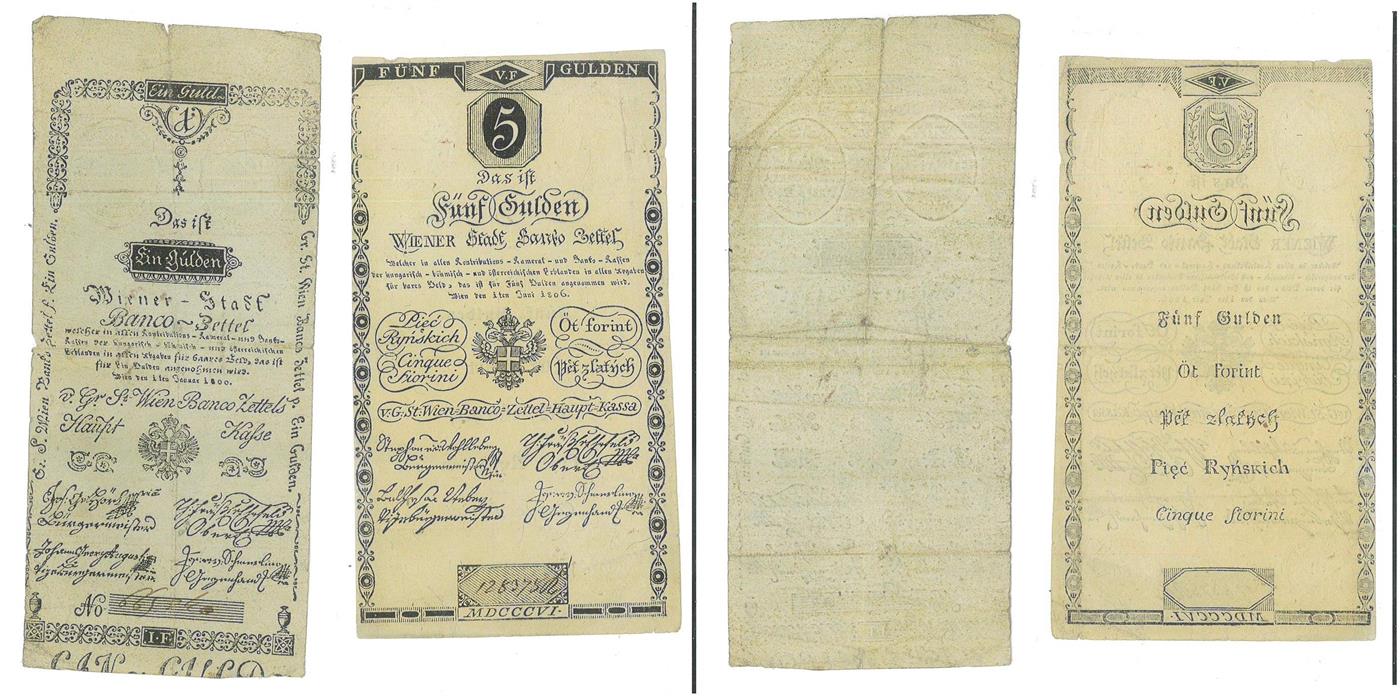 Ein Guld.
1
Das ist
Ein Gulden
Wiener - Stadt
Banco - Zettel
welcher in allen Kontributions - Kameral - und Banko -
Kassen der hungarisch - böhmisch - und österreichischen
Erblanden in allen Abgaben für baares Geld, das ist
für Ein Gulden angenommen wird.
Wien den 1ten Januar 1800.
v. Gr. St. Wien Banco Zettels
Haupt Kasse
Gr. St. Wien Banco Zettel p. Ein Gulden.
Bürgermeister
Johann Georg Augusti
Vizebürgermeister
Gegenhand
No
I.F
FÜNF V.F GULDEN
5
Das ist
Fünf Gulden
WIENER Stadt Banko Zettel
Welcher in allen Kontributions - Kameral - und Banko - Kassen
der hungarisch - böhmisch - und österreichischen Erblanden in allen Abgaben
für bares Geld, das ist für Fünf Gulden angenommen wird.
Wien den 1ten Juni 1806.
Pięć
Ryńskich
Cinque
fiorini
Öt forint
Pět zlatých
v. G. St. Wien-Banco-Zettel-Haupt-Kassa
Bürgermeister
Vizebürgermeister
Gegenhand
MDCCCVI.
V.F
5
Fünf Gulden
Fünf Gulden
Öt forint
Pět zlatých
Pięć Ryńskich
Cinque fiorini
MDCCCVI.